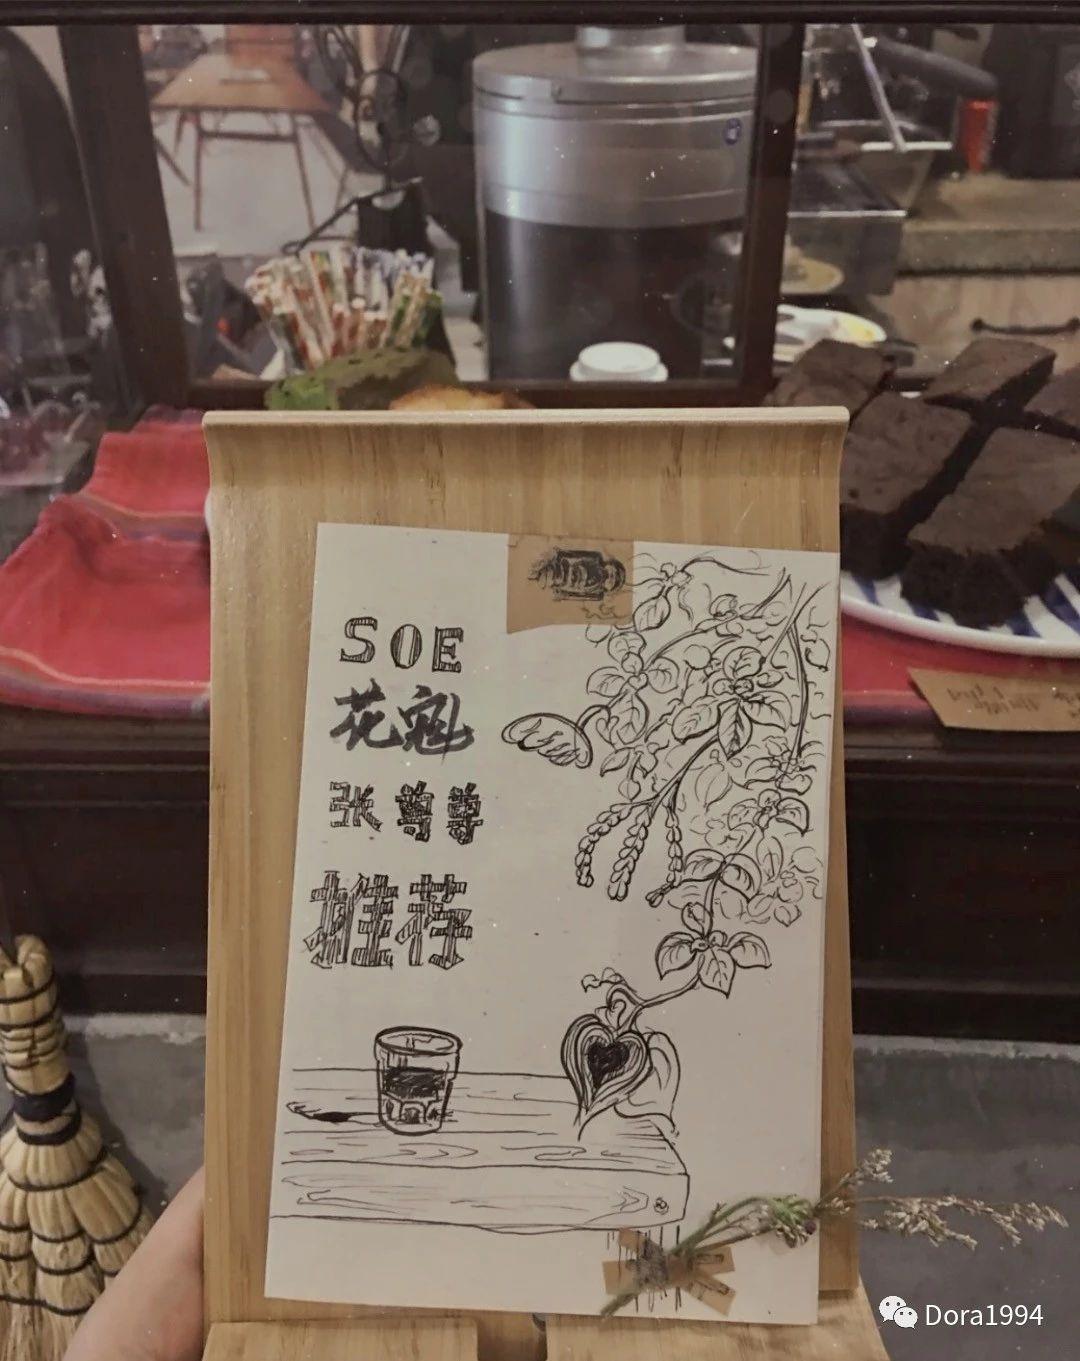 SOE
花寇
张尊尊
推荐
Dora1994